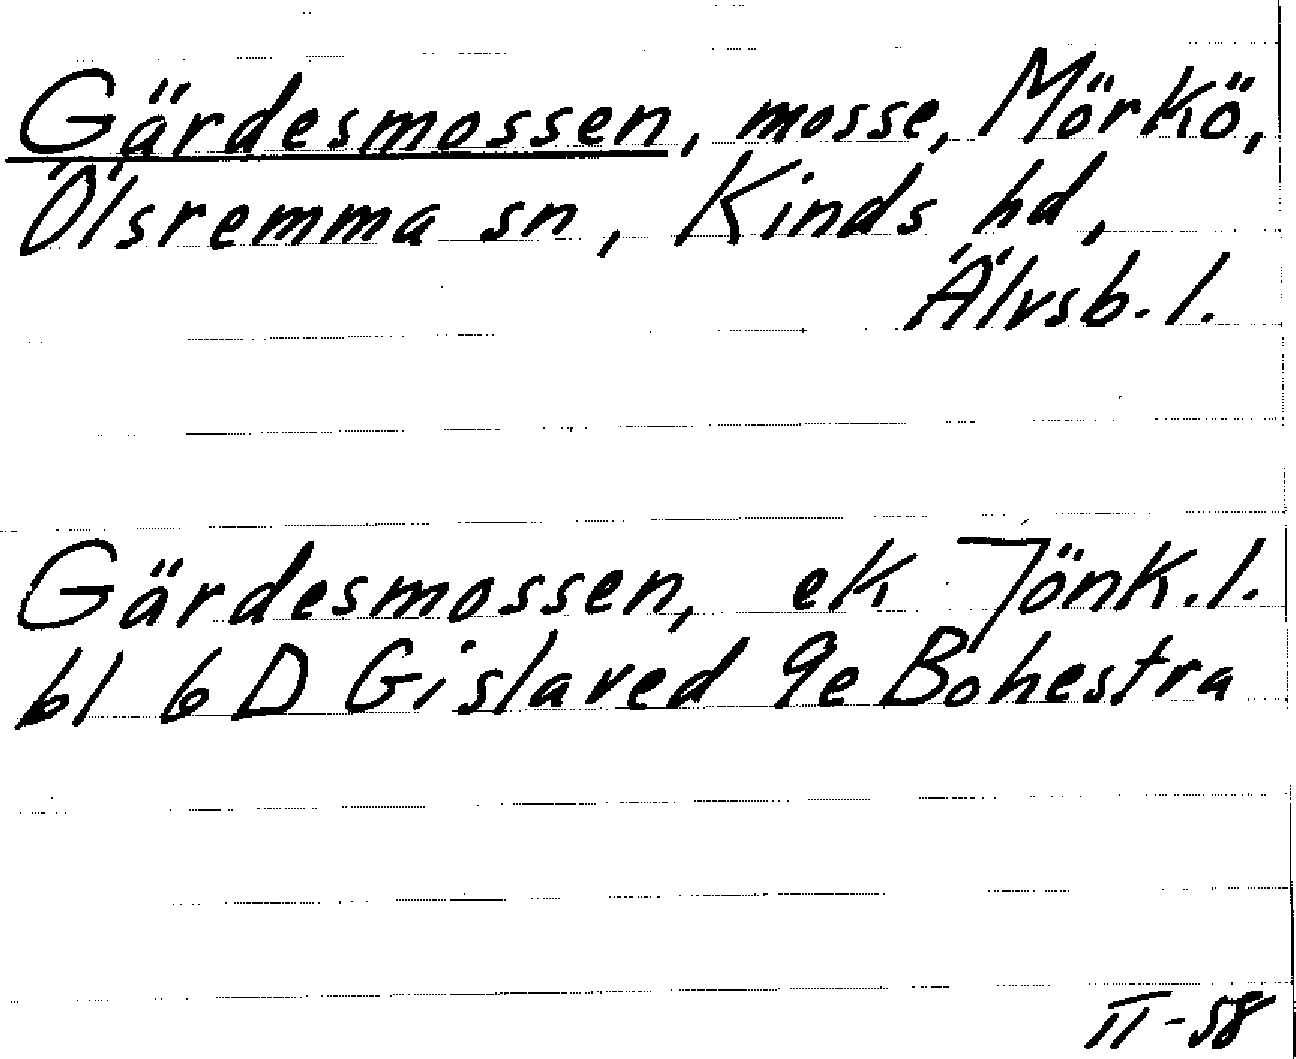 Gärdesmossen, mosse, Mörkö,
Ölsremma sn, Kinds hd,
Älvsb. l.
Gärdesmossen, ek Jönk. l.
bl 6 D Gislaved 9e Bohestra
II-58